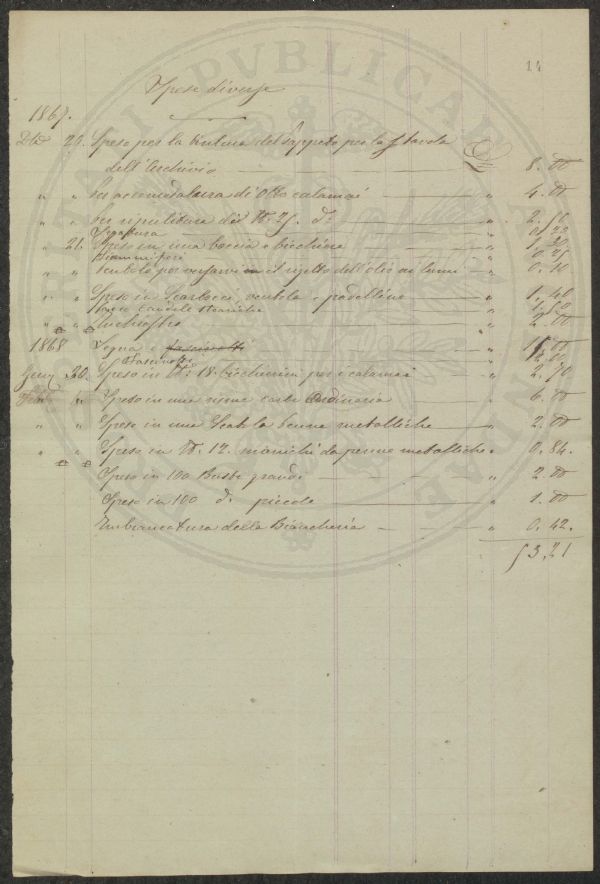 14
Spese diverse
1867.
Dbe 20. Speso per la tintura del Tappeto per la tavola
dell'Archivio £ 8.00
" " per accomodatura di Otto calamai " 4.00
" " per ripulitura di N. 25. di " 2.50
Segatura 0.22
" 21. Speso in una boccia e bicchiere " 1.20
Fiammiferi 0.25
" " Ventola per in il dell'olio ai lumi " 0.10
" " Speso in Scartocci, ventola e padelline " 1.40
candele steariche 1.50
" " Inchiostro " 2.00
1868 Legna e " 15.00
Fascinotti
Gen. 30. Speso in N. 18. bicchierini per i calamai " 2.70
" Speso in una risma carta Ordinaria " 6.00
" " Speso in una Scatola penne metalliche " 2.00
" " Speso in N. 12. manichi da penne metalliche " 0.84.
Speso in 100 Buste grandi " 2.00
Speso in 100 di piccole " 1.00
Imbiancatura della Biancheria " 0.42.
53,21
PVBLICAE